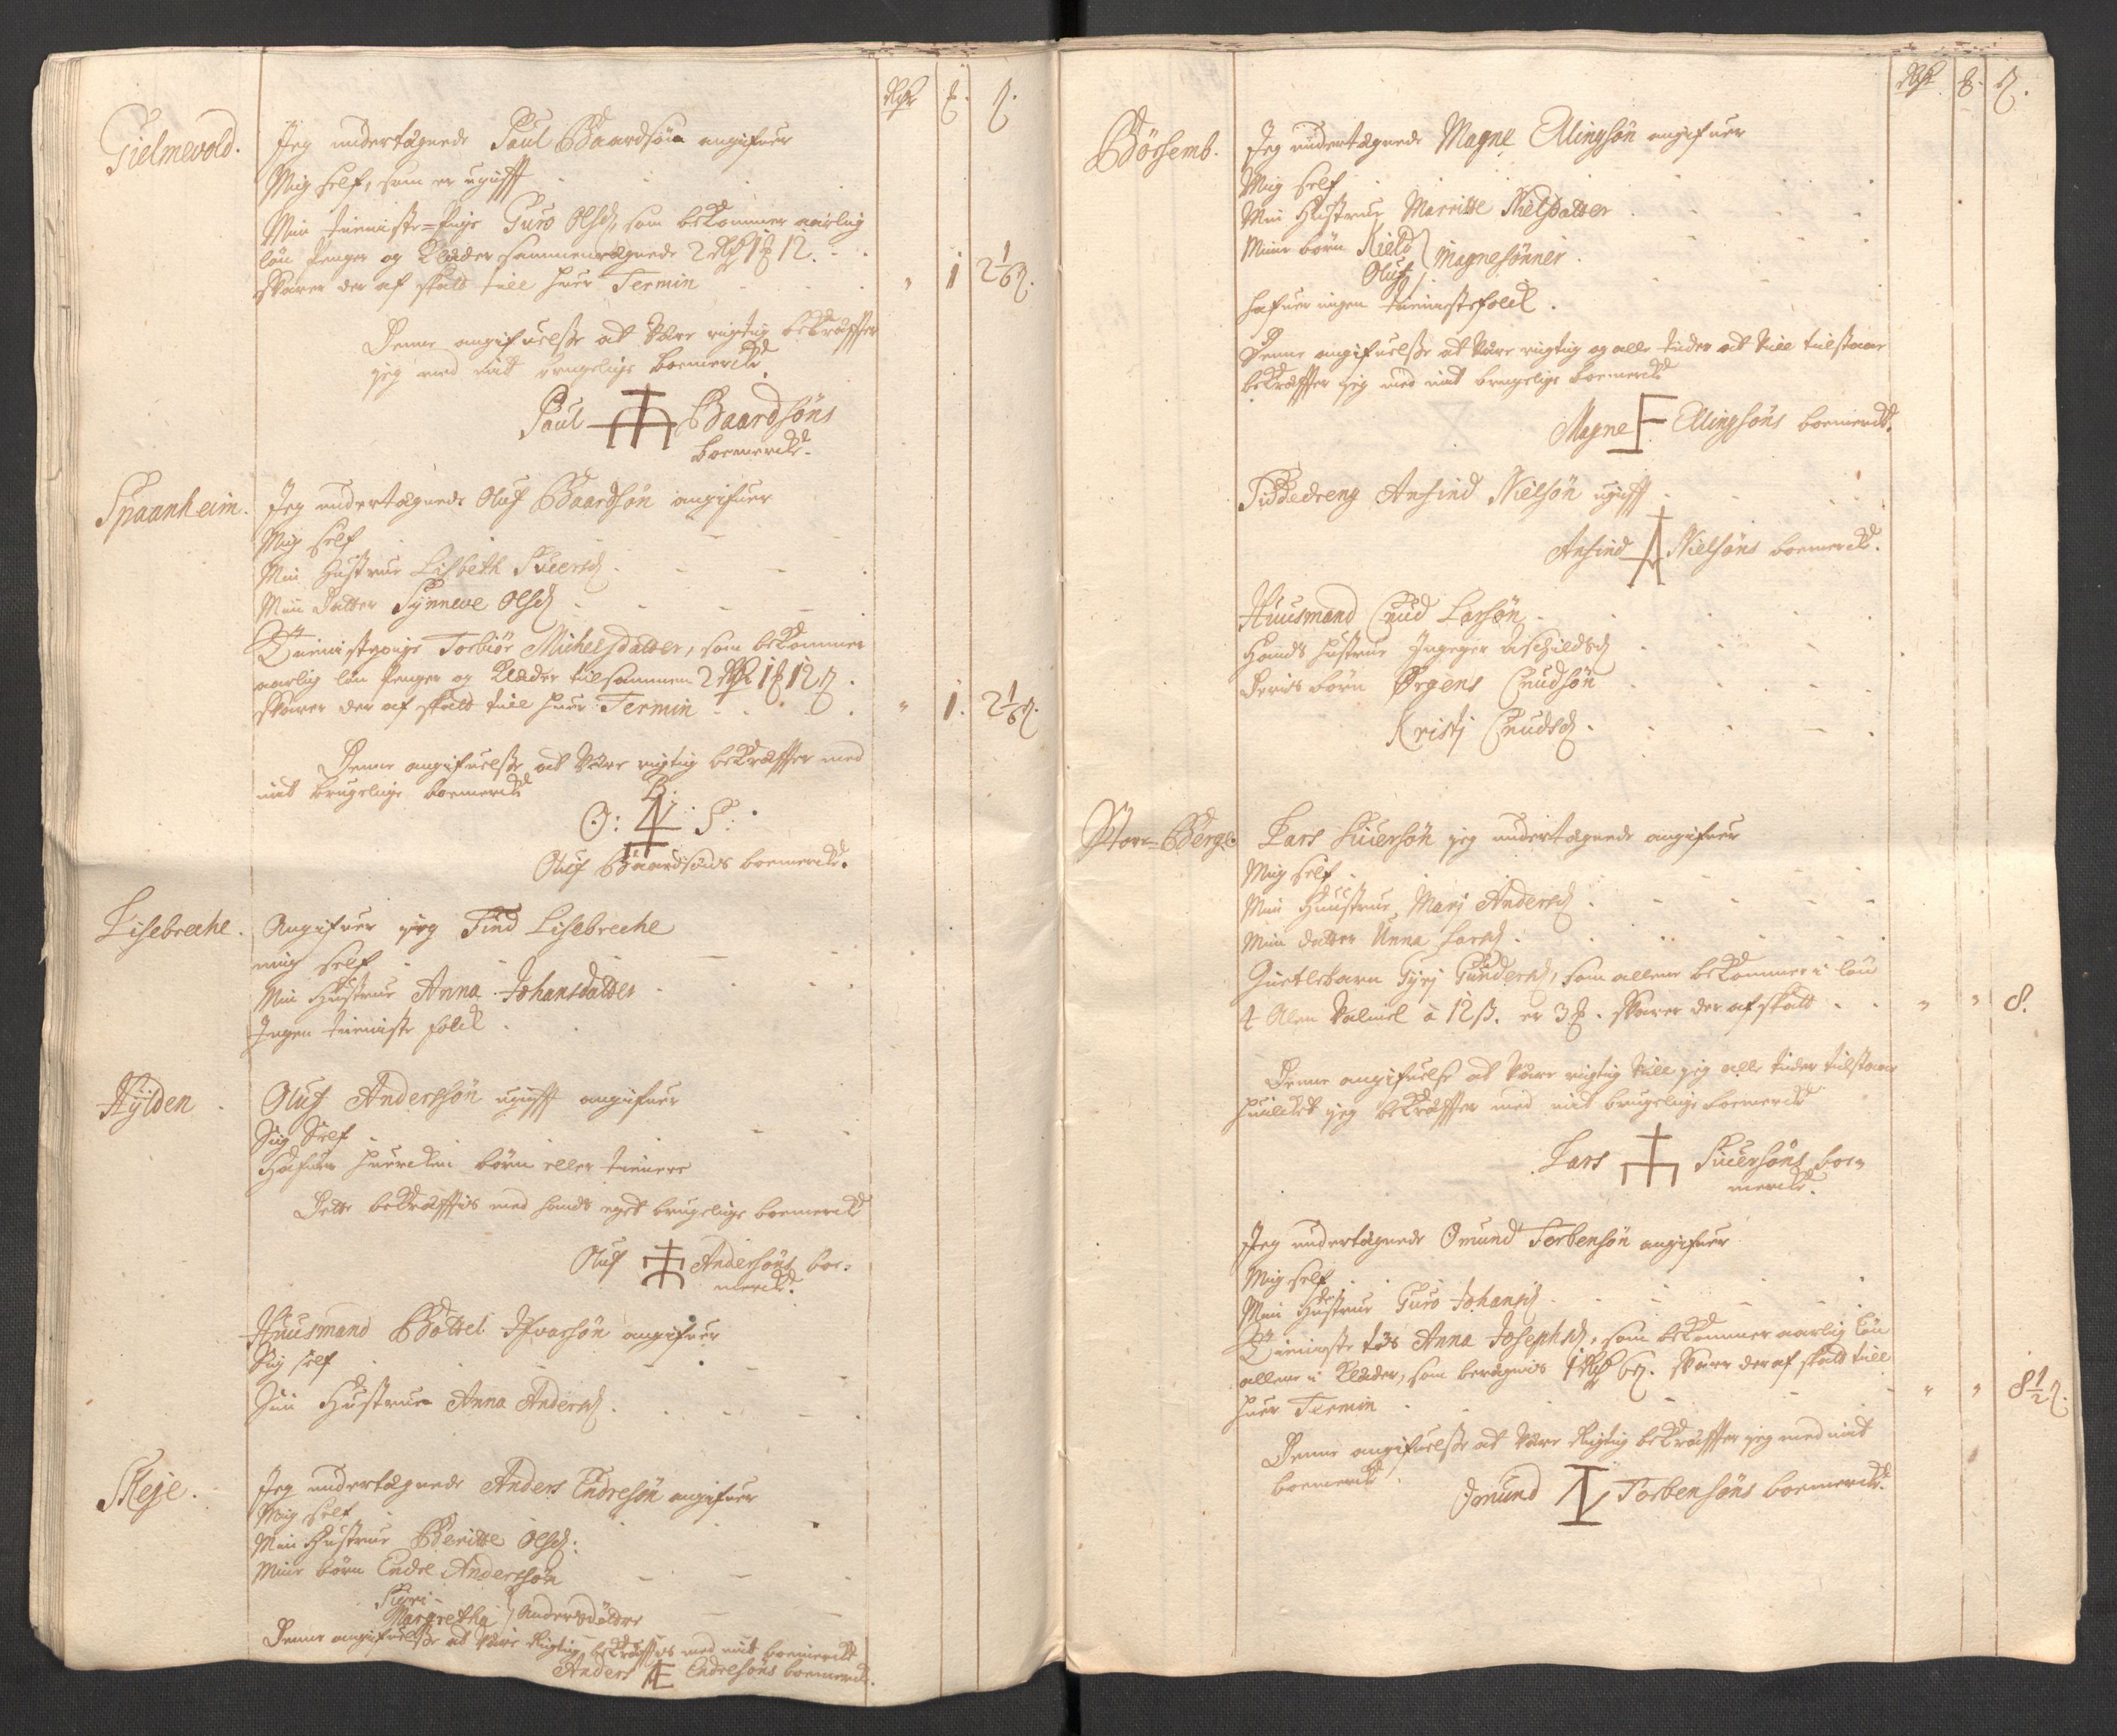 Rdr ℔. ß.
Gielmevold.
Jeg undertegnede Paul Baardsøn angifuer
Mig self, som er ugifft
Min tieniste-Pige Guro Olsd, som bekommer aarlig
løn Penger og Klæder sammenregnede 2 Rdr 1 ℔ 12.
Svarer der af skatt till huer Termin " 1 2 1/6 ß.
Denne angifuelsse at være rigtig bekræffter
jeg med mit brugelige boemercke
Paul Baardsøns
boemercke.
Spaanheim.
Jeg undertegnede Oluf Baardsøn angifuer
Mig self
Min Hustrue Lisbeth Siversd
Min Datter Synneve Olsd
Tienistepige Torbiør Michelsdatter, som bekommer
aarlig løn Penger og Klæder tilsammen 2 Rdr 1 ℔ 12 ß.
Svarer der af skatt till huer Termin " 1. 2 1/6 ß.
Denne angifuelsse at være rigtig bekræffter med
mit brugelige boemercke
B:
O: S:
Oluf Baardsøns boemercke.
Lisebreche.
Angifuer jeg Find Lisebreche
mig self
Min Hustrue Anna Johansdatter
Ingen tieniste folck
Hylden
Oluf Anderssøn ugifft angifuer
Sig Self
Hafuer huercken børn eller tienere
Dette bekræfftis med hands eget brugelige boemercke
Oluf Andersøns boe-
mercke.
Huusmand Bottel Ifvarsøn angifuer
Sig self
Sin Hustrue Anna Andersd.
Skeje.
Jeg undertegnede Anders Endresøn angifuer
Mig self
Min Hustrue Beritte Olsd:
Mine børn Endre Anderssøn
Siuri
Margretha Andersdøttre
Denne angifuelsse at være Rigtig bekræfftis med mit boemercke
Anders Æ Endresøns boemercke.
Rdr ℔. ß.
Børsemb.
Jeg undertegnede Magne Ellingsøn angifuer
Mig self
Min Hustrue Marritte Nielsdatter
Mine børn Kield
Oluf Magnesønner
hafuer ingen tienistefolck.
Denne angifuelsse at være rigtig og alle tider at vill tilstaae
bekræffter jeg med mit brugelige boemercke
Magne Ellingsøns boemercke.
Ansind Nielsøn ugifft
Ansind Nielsøns boemercke.
Huusmand Cnud Larsøn
Hands hustrue Ingeger Aschildsd
Deris børn Ørgens Cnudsøn
Kristj Cnudsd.
Store-Berge.
Lars Siuersøn jeg undertegnede angifuer
Mig self
Min Huustrue Marj Andersd
Min datter Unna Larsd.
Gyrj Gundersd, som allene bekommer i løn
4 Alen Valmel à 12 ß. er 3 ℔. Svarer der af skatt " " 8.
Denne angifuelse at være rigtig vill jeg alle tider tilstaae
huilcket jeg bekræffter med mit brugelige boemercke
Lars Siuersøns boe-
mercke.
Jeg undertegnede Omund Torbensøn angifuer
Mig self
Min Hustrue Guro Johansd
Tieniste tøs Anna Josephsd, som bekommer aarlig løn
allene i Klæder, som beregnis 1 Rdr 6 ß. Svarer der af skatt till
huer Termin " " 8 1/2 ß.
Denne angifuelsse at være Rigtig bekræffter jeg med mit
boemercke
Omund Torbensøns boemercke.